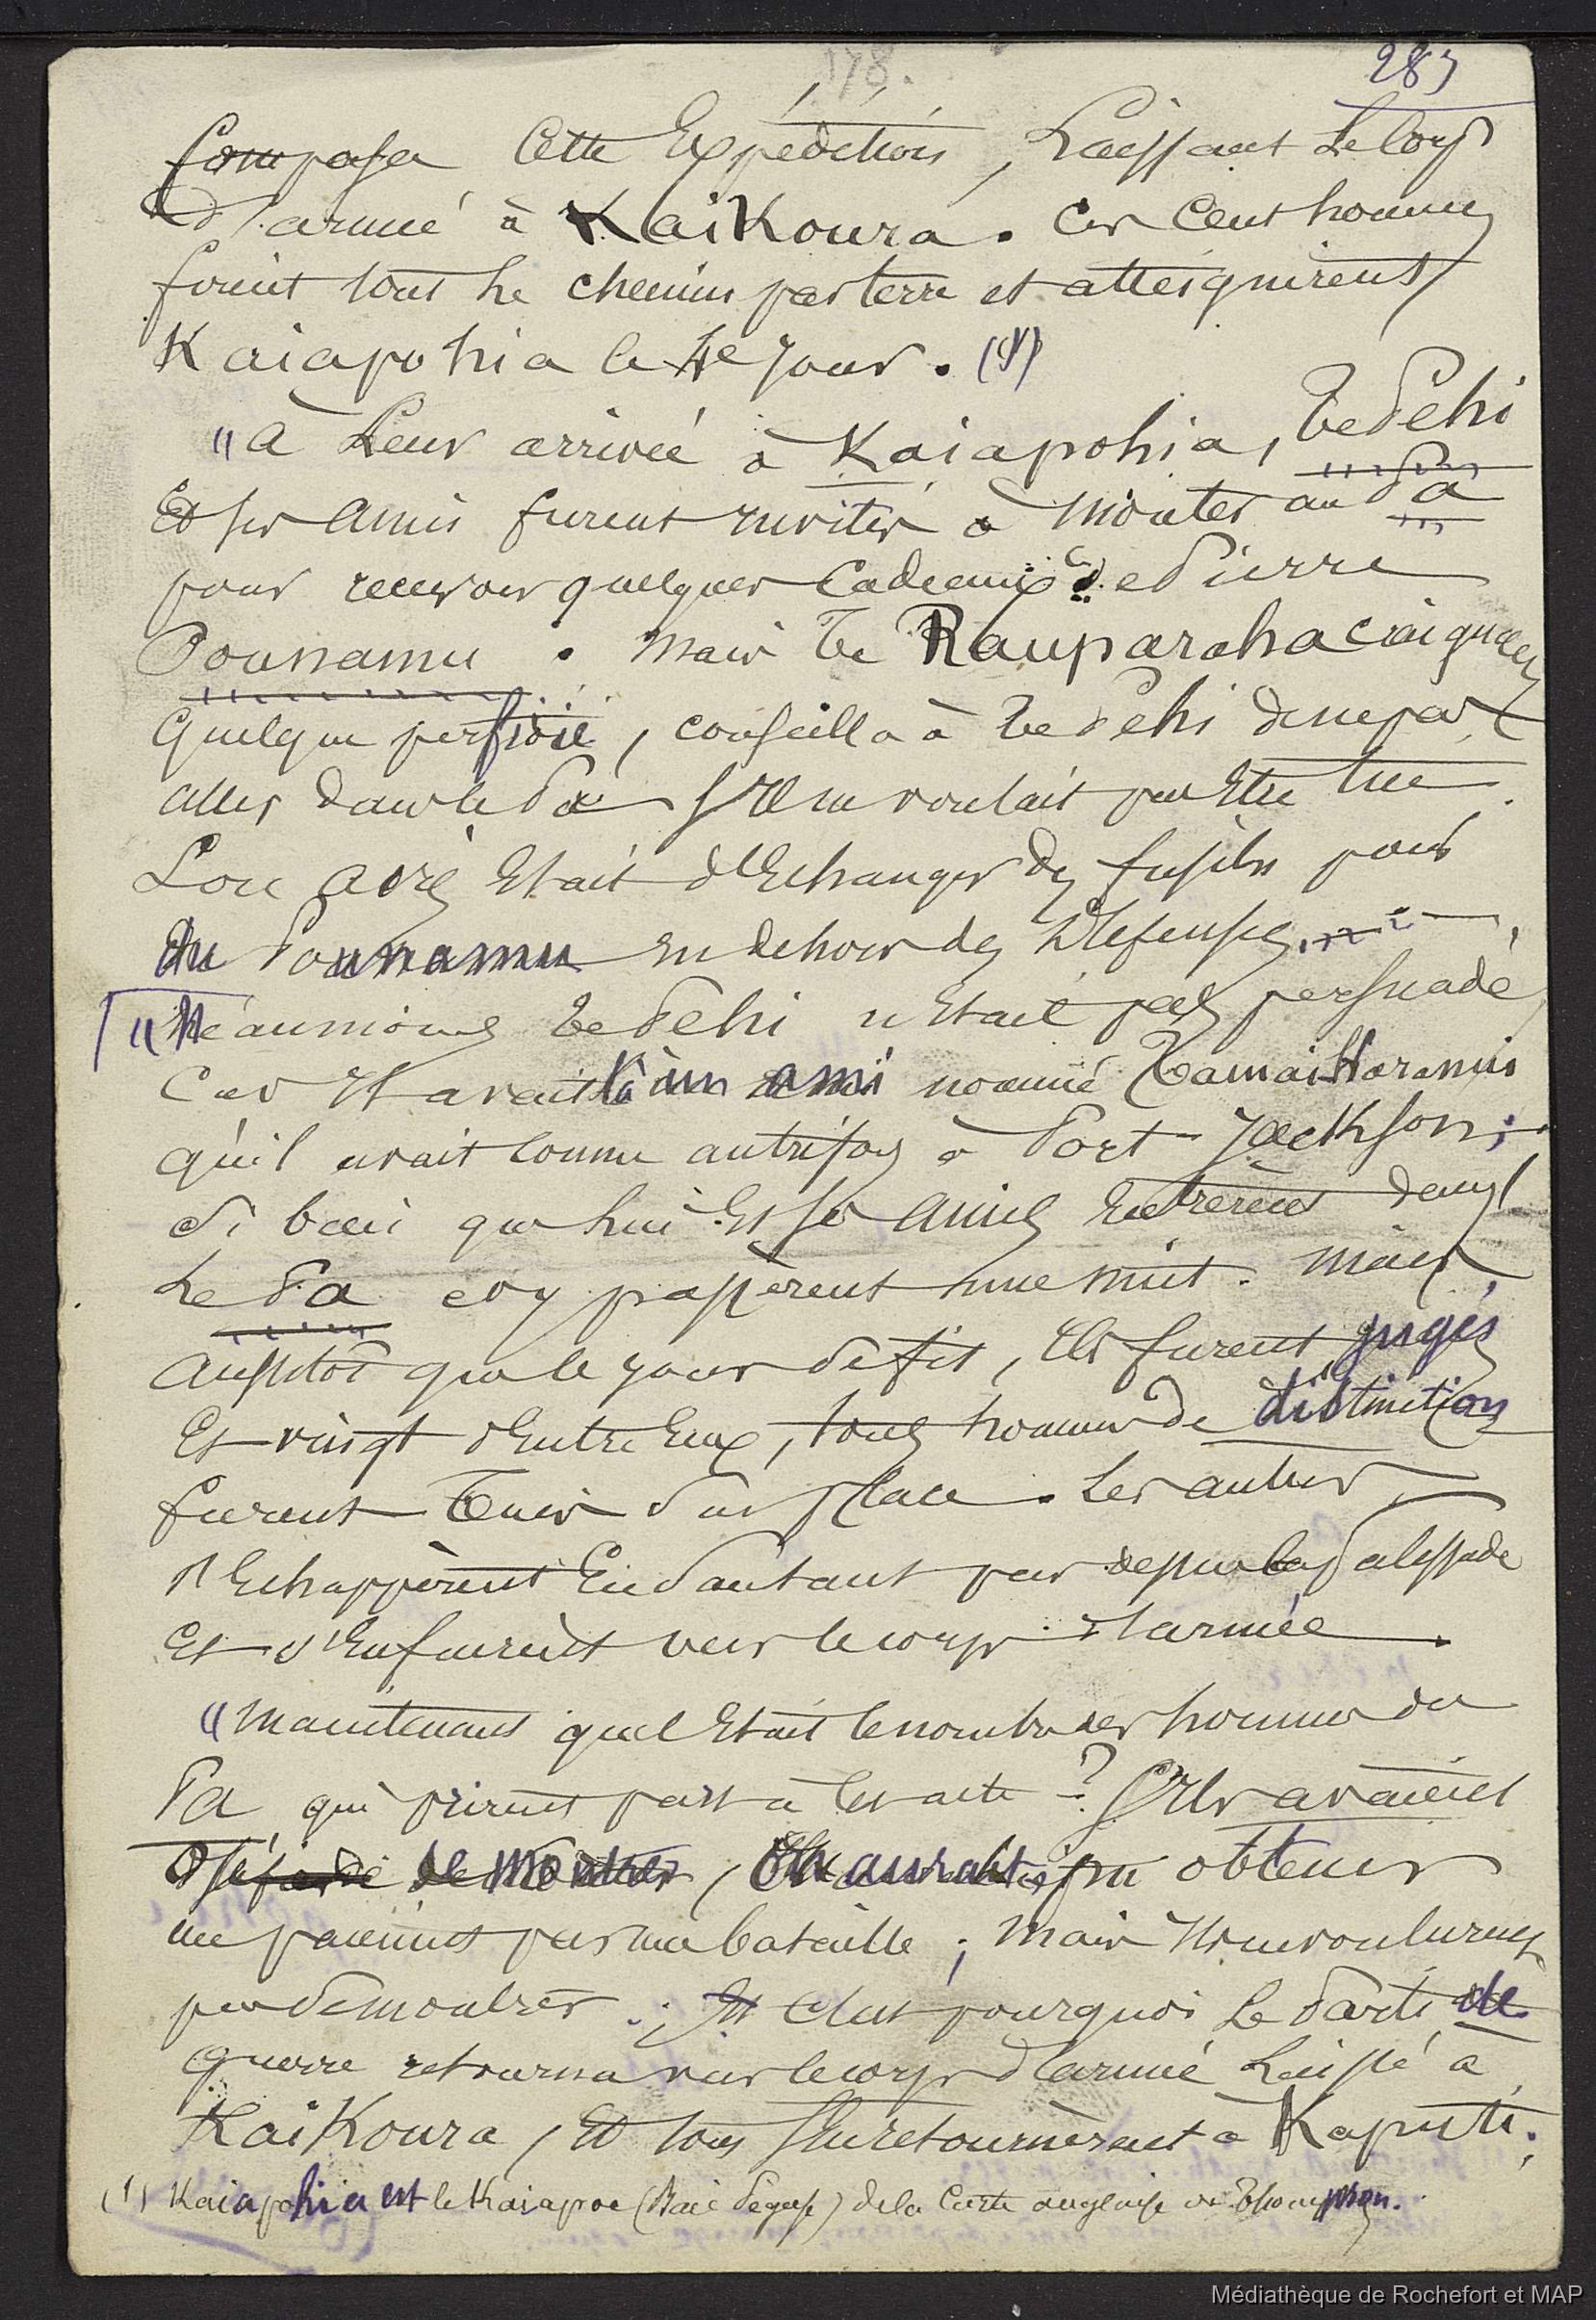 178.
283
Composer cette Expédition, Laissant Le Corps
d'armée à KaiKoura. Ces Cent hommes
firent tout le chemin par terre et atteignirent
Kaiapohia le 4e jour. (1)
"à Leur arrivée à Kaiapohia, Te Pehi
Et ses Amis furent invités à monter au Pa
pour recevoir quelques Cadeaux de Pierre
Pounamu. mais Te Rauparaha craignant
quelque perfidie, conseilla à Te Pehi de ne pas
aller dans le Pa s'Il ne voulait pas Etre tué.
Son avis Etait d'Echanger des fusils pour
du Pounamu en dehors des Défenses.
"Néanmoins Te Pehi n'Etait pas persuadé,
Car Il avait là un ami nommé TamaiHaranui
qu'il avait connu autrefois à Port-Jackson;
Si bien que lui Et ses Amis Entrèrent dans
Le Pa et y passèrent une nuit. Mais,
Aussitôt que le jour se fit, Ils furent jugés
Et vingt d'Entre Eux, tous hommes de distinction
furent Tués Sur place. Les autres
s'Echappèrent En Sautant par dessus la Palissade
Et s'Enfuirent vers le corps d'armée.
"Maintenant quel Etait le nombre des hommes du
Pa qui prirent part à cet acte? S'Ils avaient
osé se montrer, On aurait pu obtenir
un paiement par une bataille; mais Ils ne voulurent
pas Se montrer. Et C'est pourquoi Le Parti de
guerre retourna vers le corps d'armée Laissé à
KaiKoura, Et tous s'En retournèrent à Kapiti;
(1) Kaiapohia est le Kaiapoi (Baie Pegase) de la Carte anglaise de Thompson.
Médiathèque de Rochefort et MAP